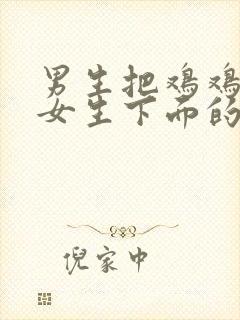 男生把鸡鸡
女生下面的
倪家中